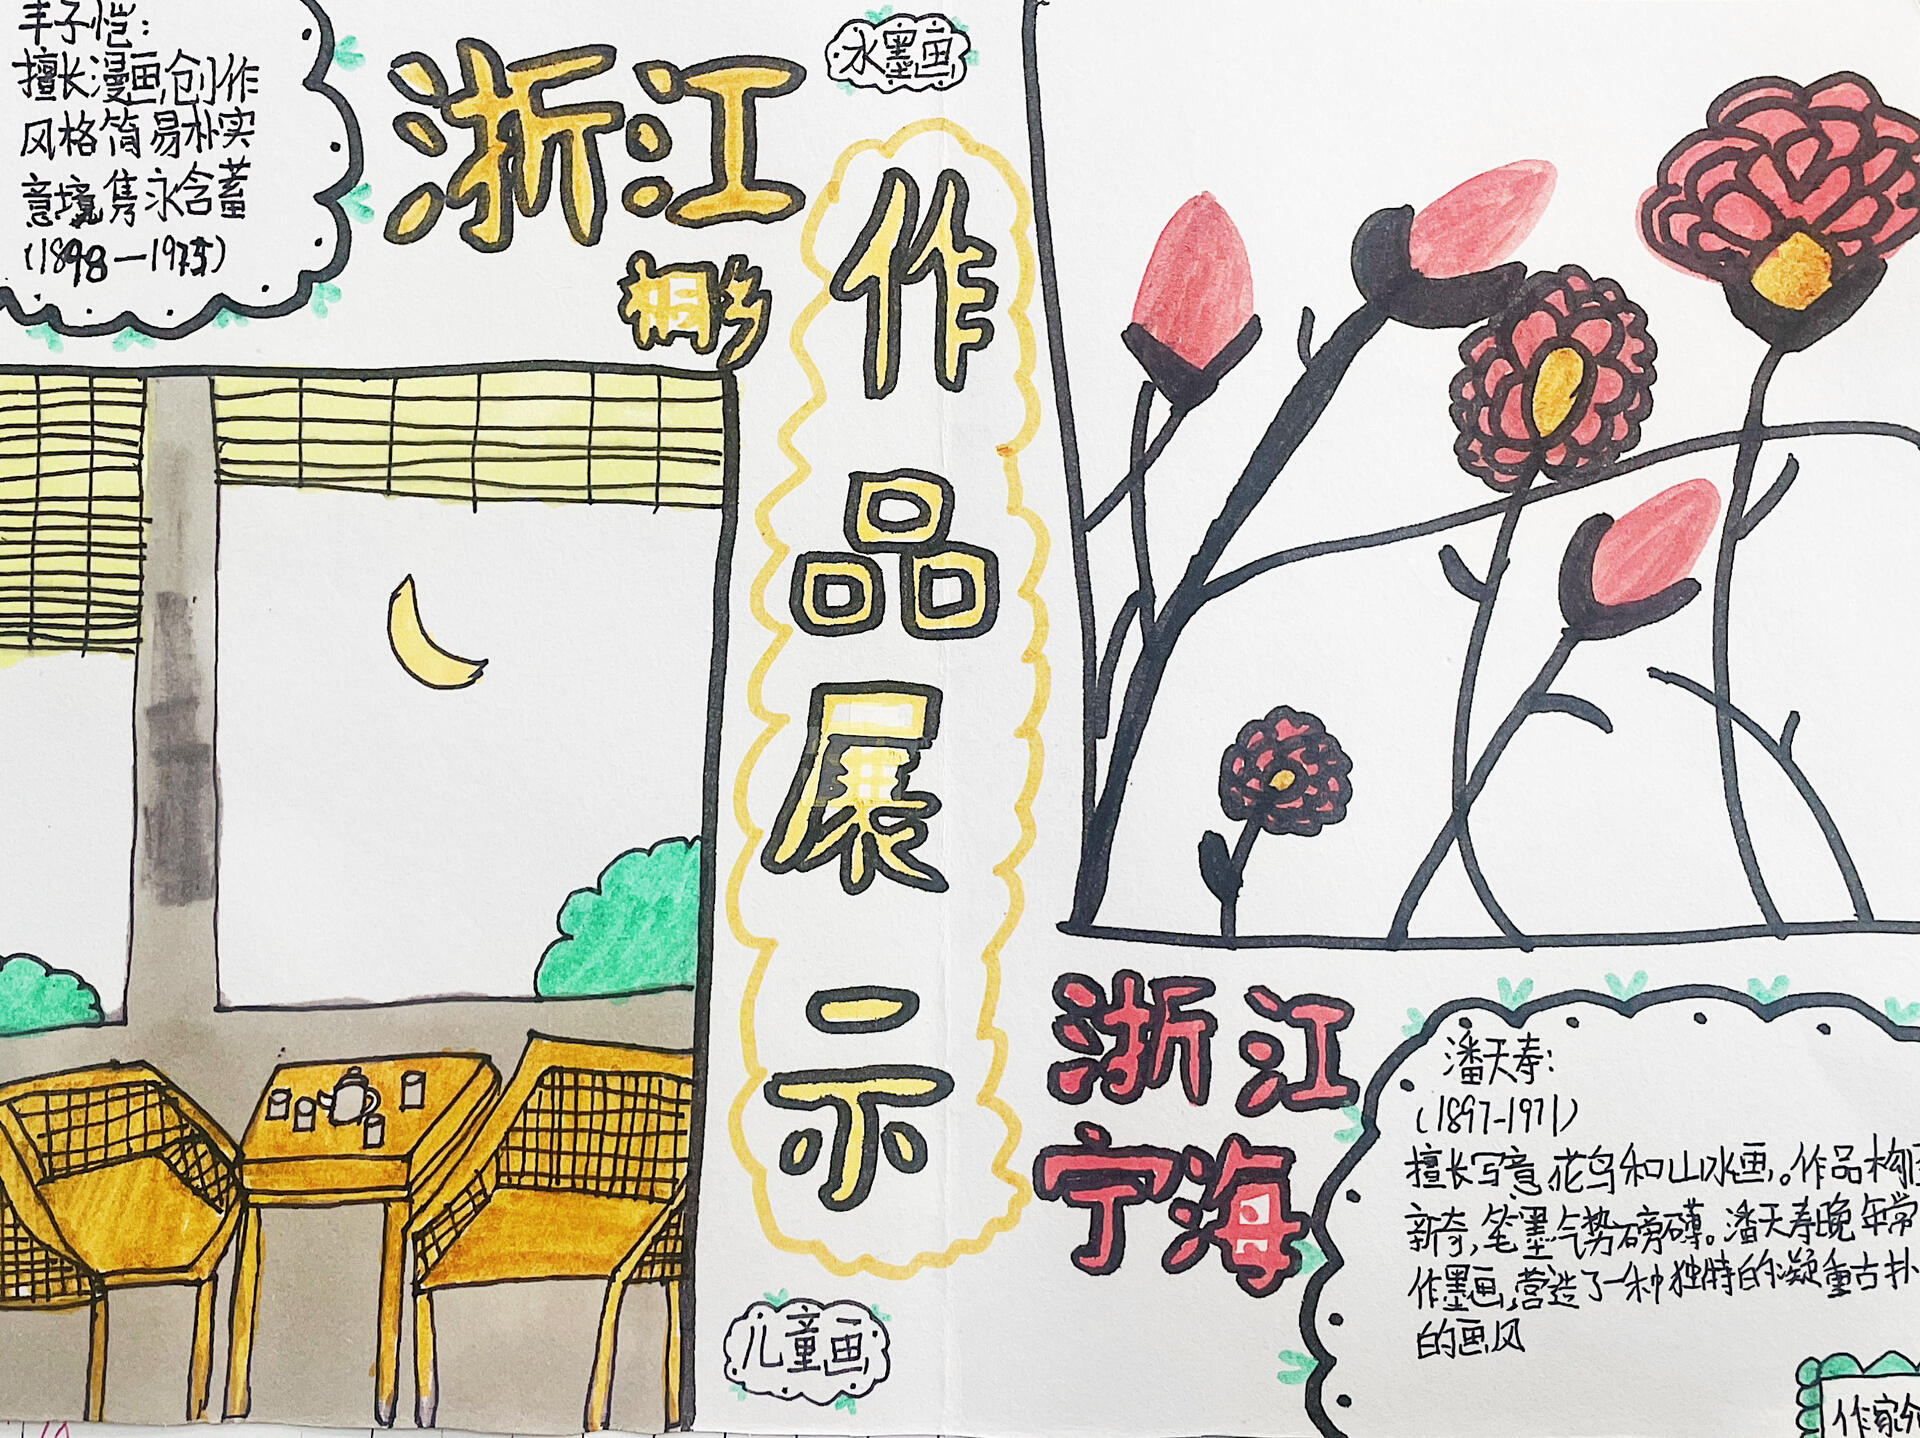 丰子恺:
擅长漫画,创作
风格简易朴实
意境隽永含蓄
(1898—1975)
浙江
桐乡
水墨画
作
品
展
示
儿童画
浙江
宁海
潘天寿:
(1897-1971)
擅长写意,花鸟和山水画,。作品构
新奇,笔墨气势磅礴。潘天寿晚年常
作墨画,营造了一种独特的凝重古朴
的画风
作家